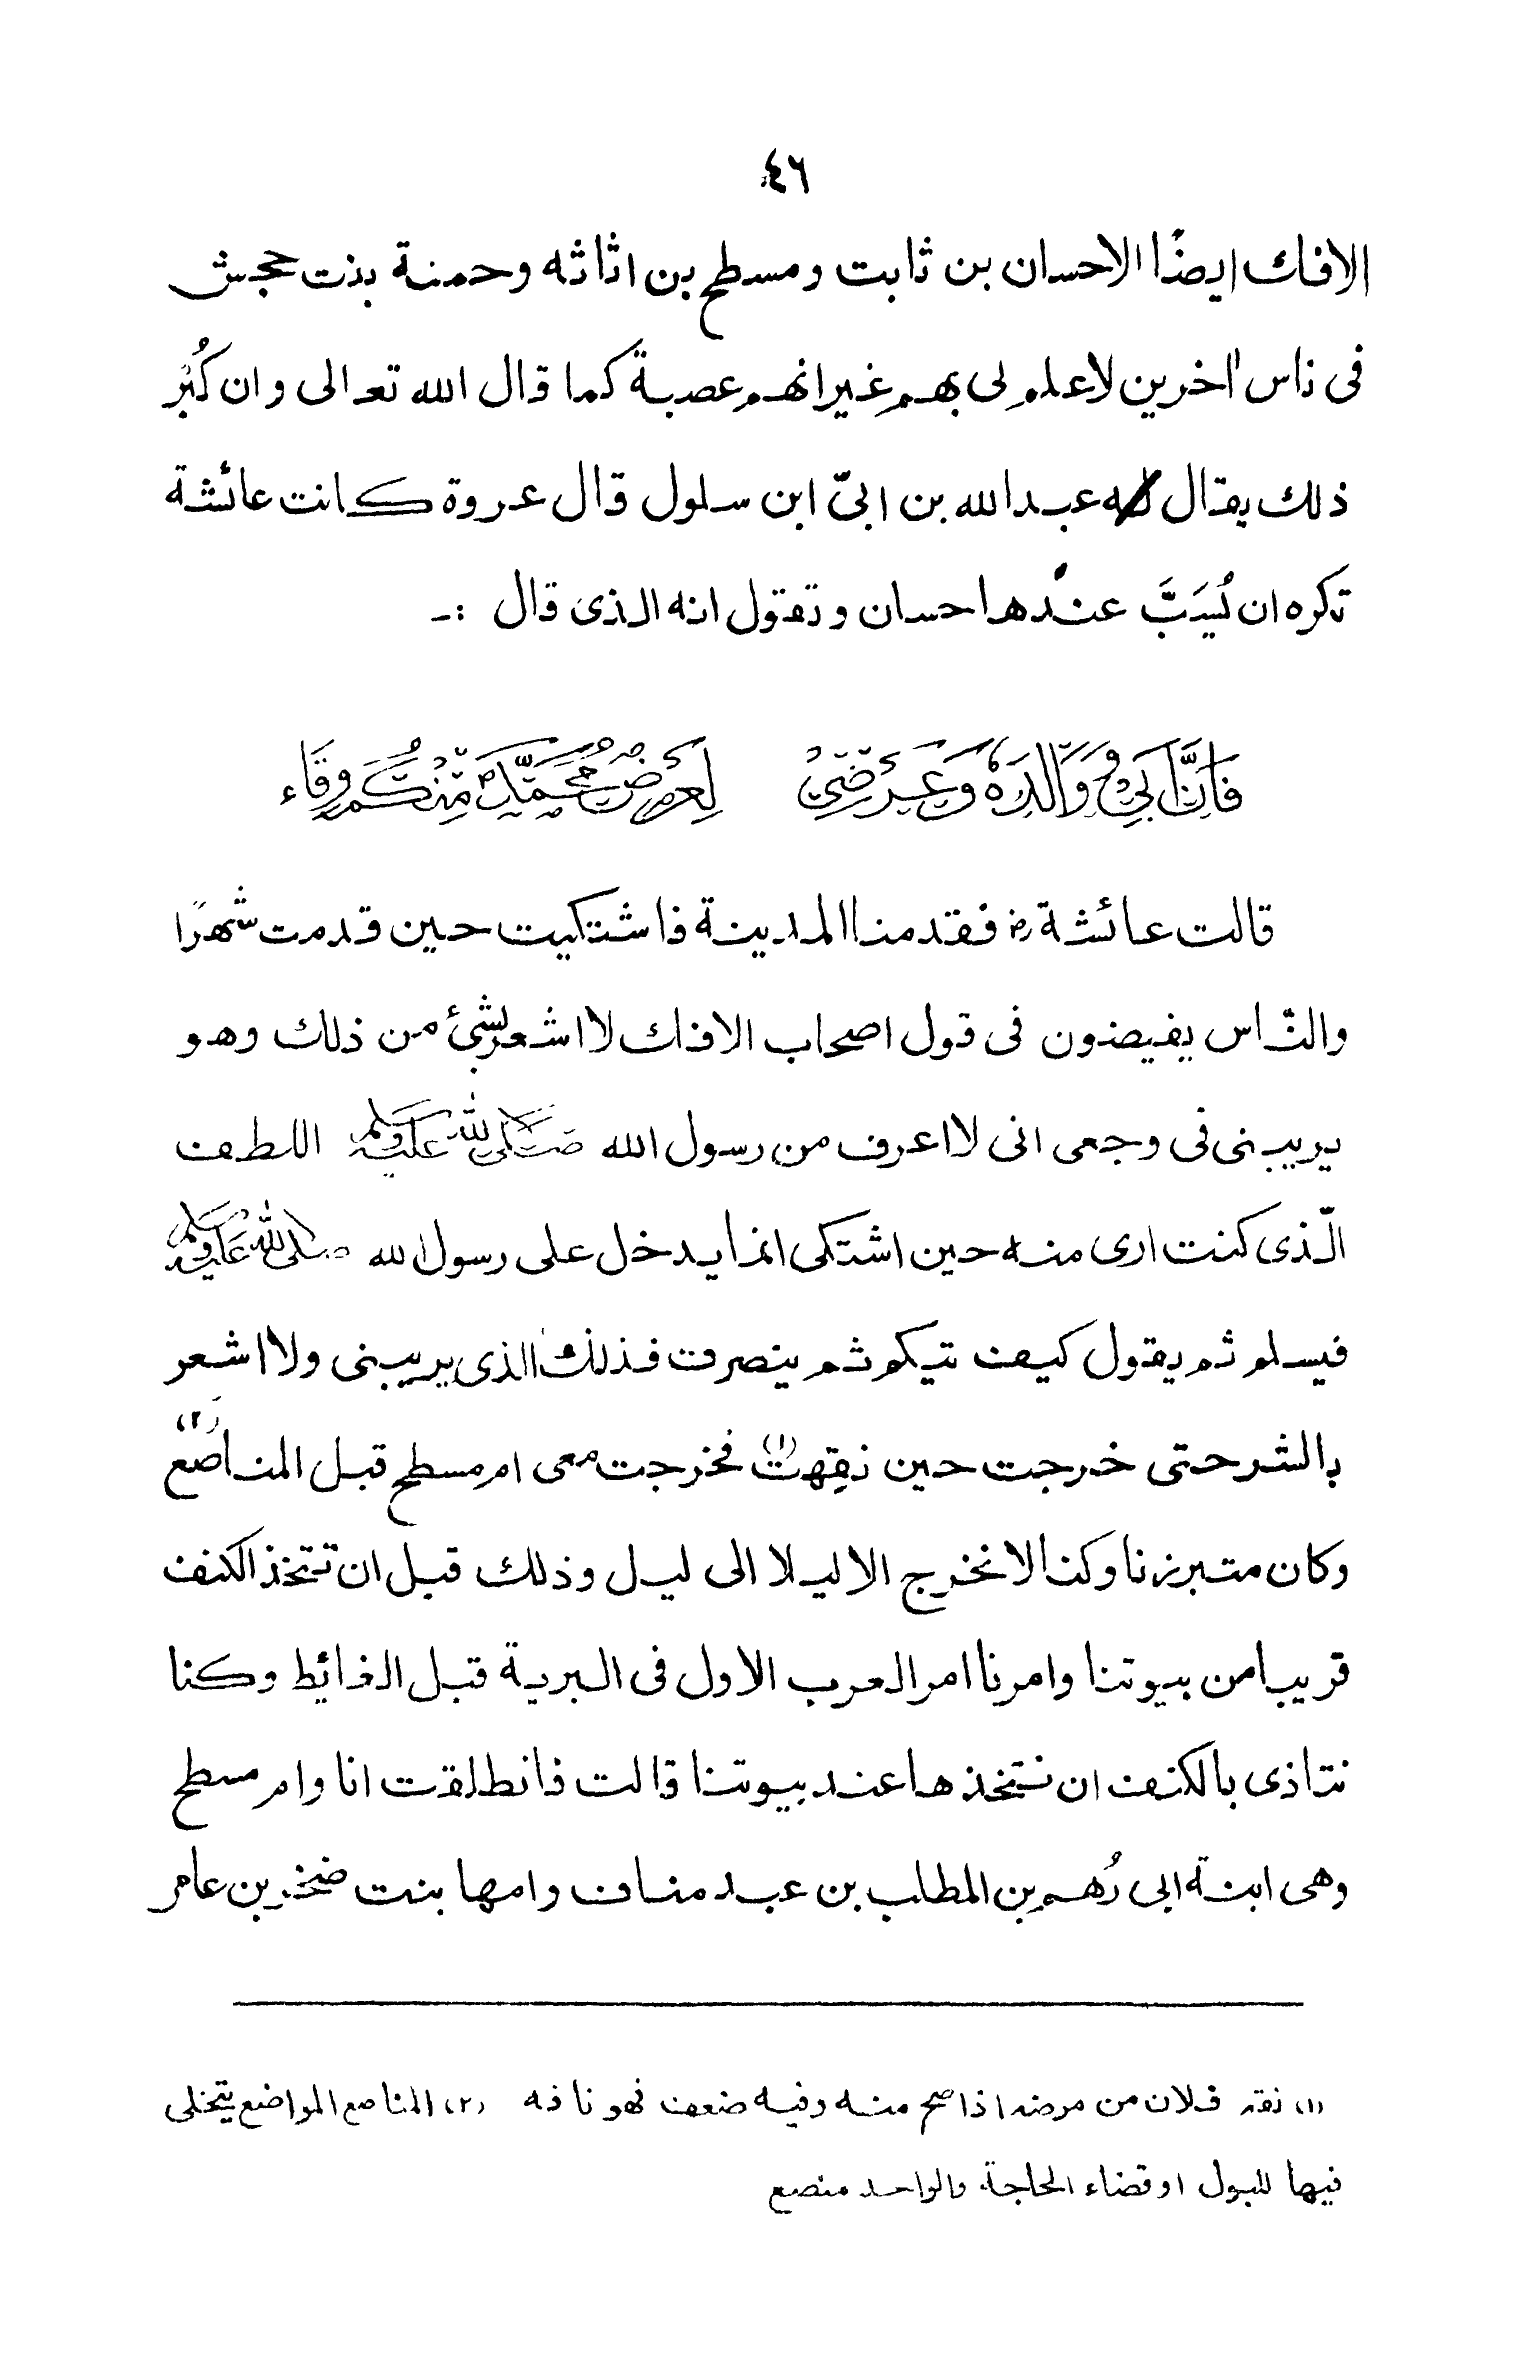 ٤٦
الافك ايضًا الاحسان بن ثابت ومسطح بن اثاثه وحمنة بنت حجش
فى ناس اٰخرين لاعلم لى بهم غير انهم عصبة كما قال الله تعالى وان كُبْر
ذلك يقال له عبدالله بن ابىّ ابن سلول قال عروة كانت عائشة
تكره ان يُسَبَّ عندها حسان وتقول انه الذى قال :-
فَاِنَّ اَبِيْ وَوَالِدَهٗ وَعِرْضِيْ    لِعِرْضِ مُحَمَّدٍ مِّنْكُمْ وِقَاء
قالت عائشةرض فقدمنا المدينة فاشتكيت حين قدمت شهرًا
والنّاس يفيضون فى قول اصحاب الافك لااشعر بشئ من ذلك وهو
يريبنى فى وجعى انى لااعرف من رسول الله صَلَّى اللّٰهُ عَلَيْهِ وَسَلَّم اللطف
الّذى كنت ارى منه حين اشتكى انما يدخل على رسول الله صلى اللّٰه عَلَيْهِ وَسَلَّم
فيسلم ثم يقول كيف تيكم ثم ينصرف فذلك الذى يريبنى ولااشعر
بالشر حتى خرجت حين نقِهت(١) فخرجت معى ام مسطح قبل المناصع(٢)
وكان متبرزنا وكنا لا نخرج الاليلا الى ليل وذلك قبل ان تتخذ الكنف
قريبا من بيوتنا وامرنا امر العرب الاول فى البرية قبل الغائط وكنا
نتاذى بالكنف ان نتخذها عند بيوتنا قالت فانطلقت انا وام مسطح
وهى ابنة ابى رُهم بن المطلب بن عبد مناف وامها بنت صخر بن عامر
(١) نقه فلان من مرضه اذا صح منه وفيه ضعف فهو نافه (٢) المناصع المواضع يتخلى
فيها للبول او قضاء الحاجة والواحد منصع